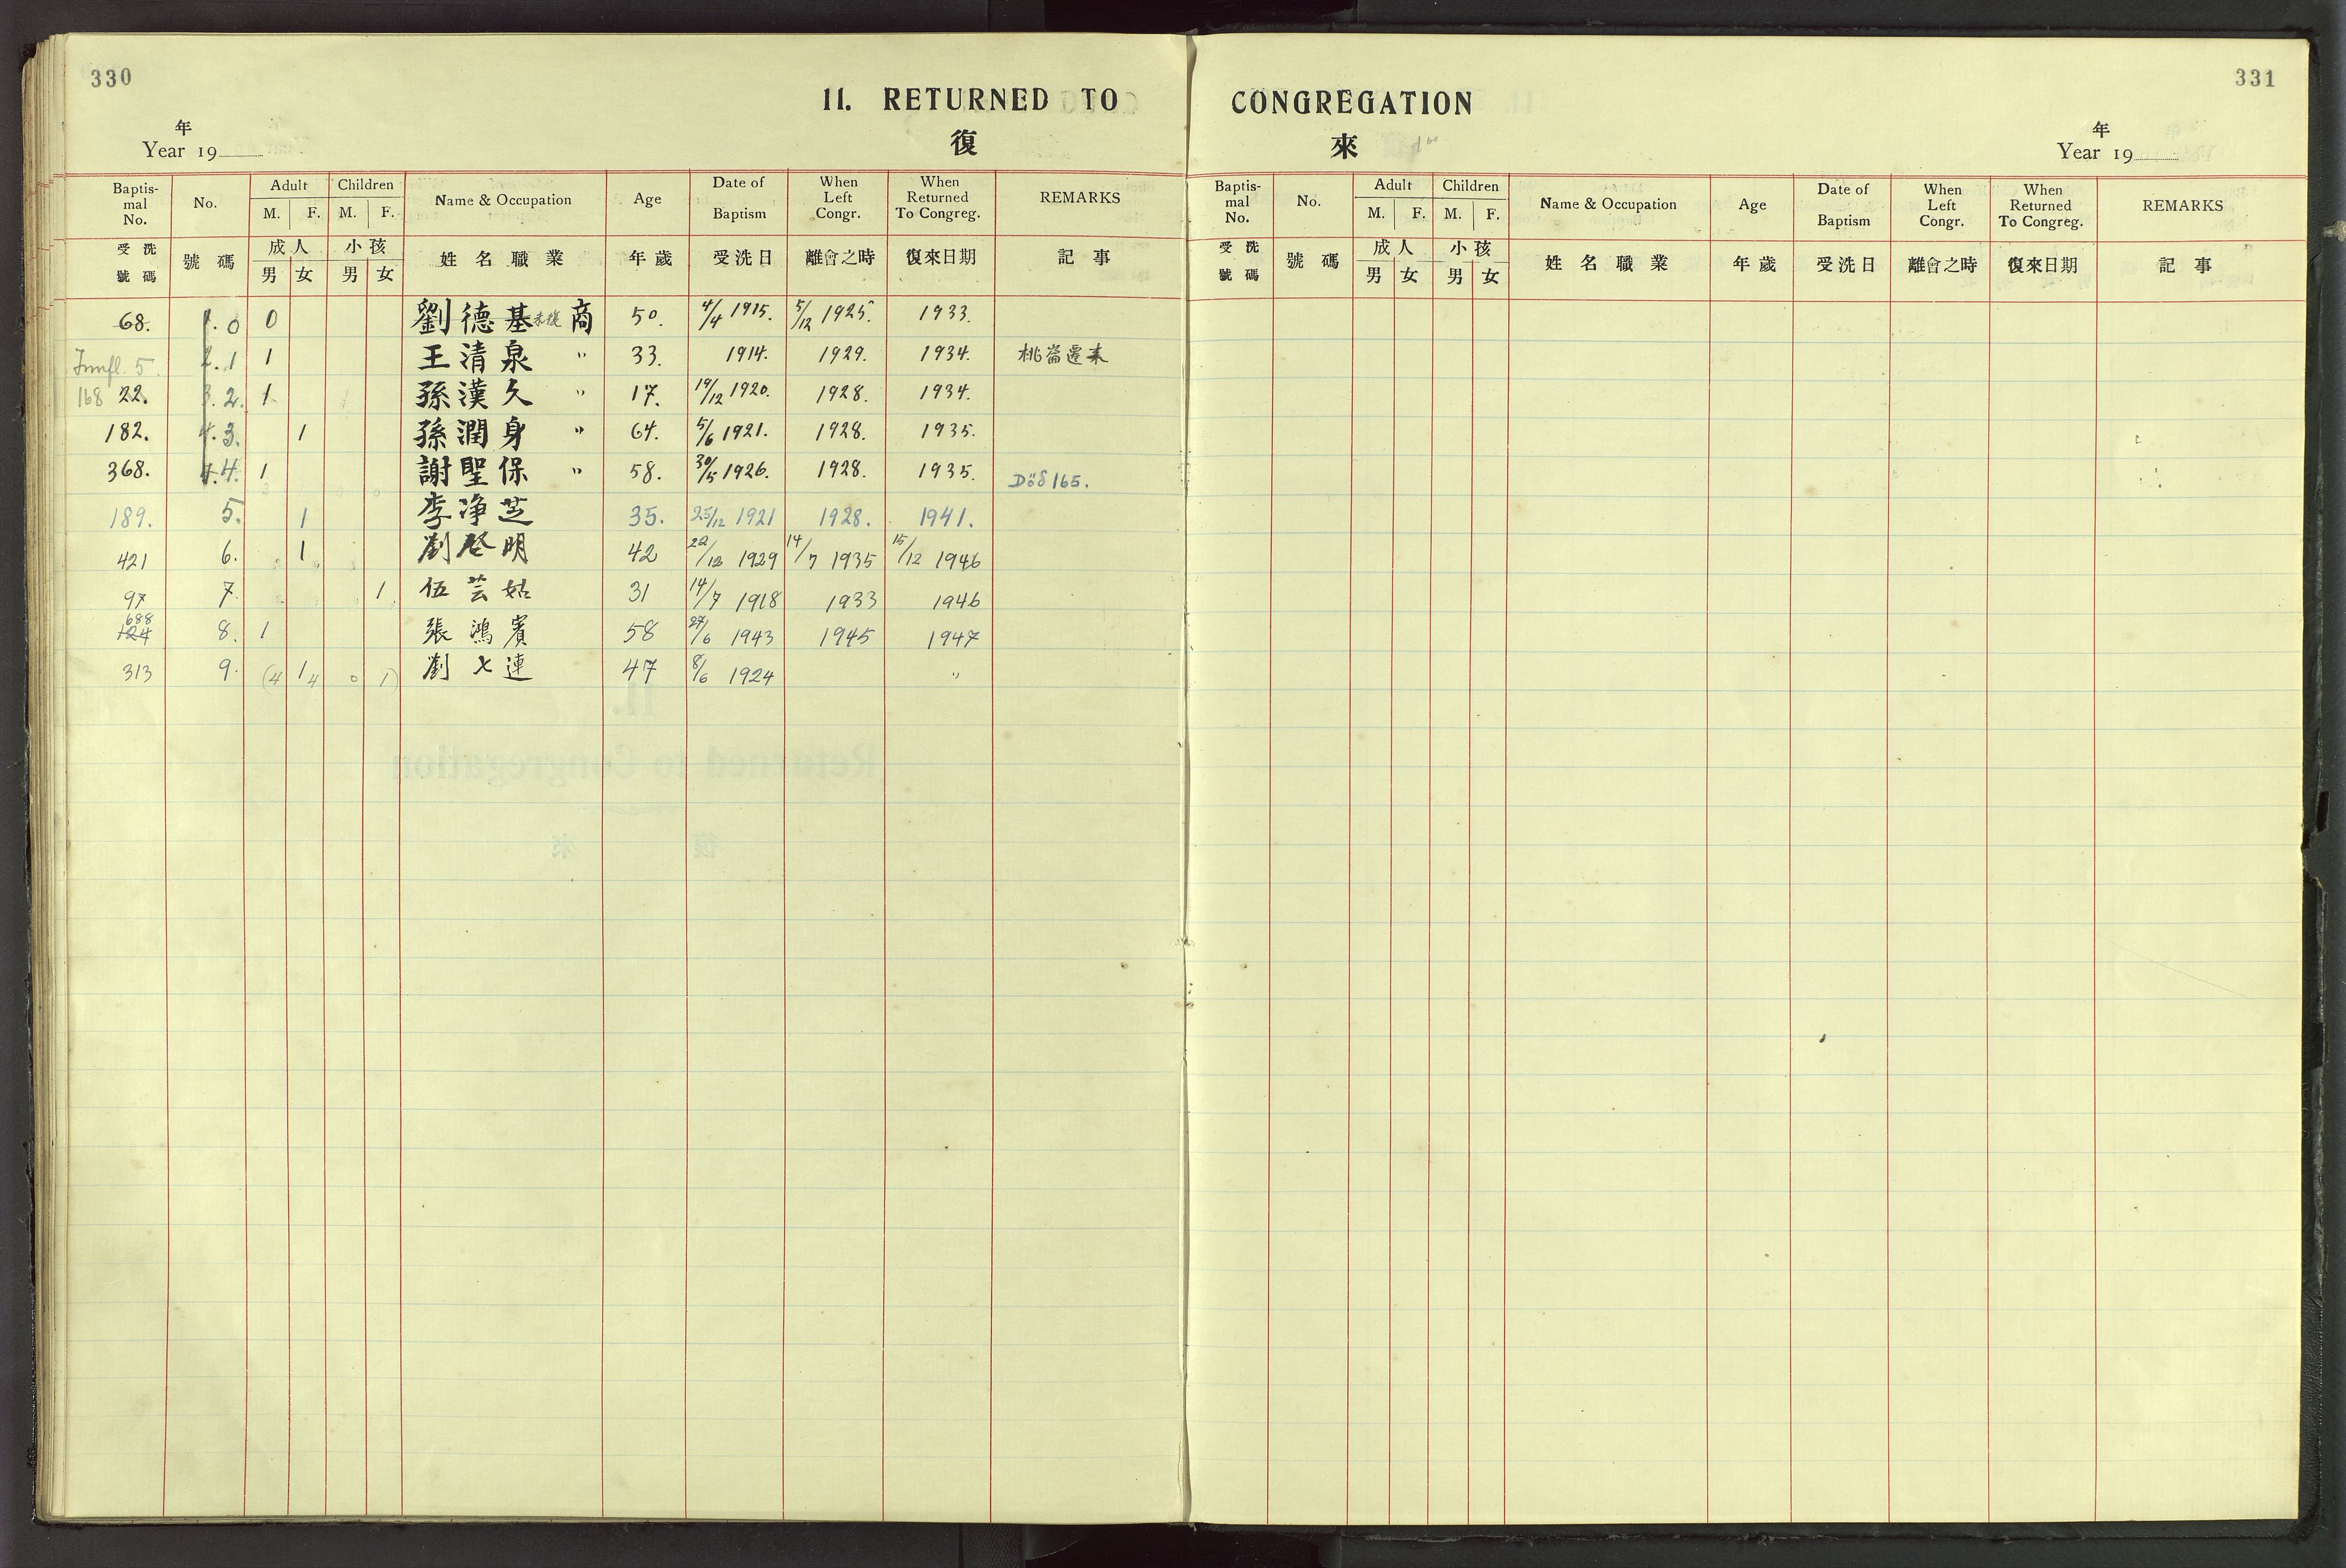 330
331
11. RETURNED TO CONGREGATION
復 來
年
Year 19
年
Year 19
Baptismal No. No. Adult M. F. Children M. F. Name & Occupation Age Date of Baptism When Left Congr. When Returned To Congreg. REMARKS
受洗號碼 號碼 成人 男 女 小孩 男 女 姓名職業 年歲 受洗日 離會之時 復來日期 記事
68. 0 0 劉德基 商 50. 4/4 1915. 5/12 1925. 1933.
5. 1 1 王清泉 " 33. 1914. 1929. 1934.
168 22. 2. 1 孫漢久 " 17. 19/12 1920. 1928. 1934.
182. 3. 1 孫潤身 " 64. 5/6 1921. 1928. 1935.
368. 4. 1 謝聖保 " 58. 30/5 1926. 1928. 1935. Död 165.
189. 5. 1 李净芝 35. 25/12 1921 1928. 1941.
421 6. 1 劉啓明 42 22/12 1929 14/7 1935 15/12 1946
97 7. 1 伍芸姑 31 14/7 1918 1933 1946
688 124 8. 1 張鴻賓 58 27/6 1943 1945 1947
313 9. (4 1 4 0 1) 劉七連 47 8/6 1924 "
Baptismal No. No. Adult M. F. Children M. F. Name & Occupation Age Date of Baptism When Left Congr. When Returned To Congreg. REMARKS
受洗號碼 號碼 成人 男 女 小孩 男 女 姓名職業 年歲 受洗日 離會之時 復來日期 記事